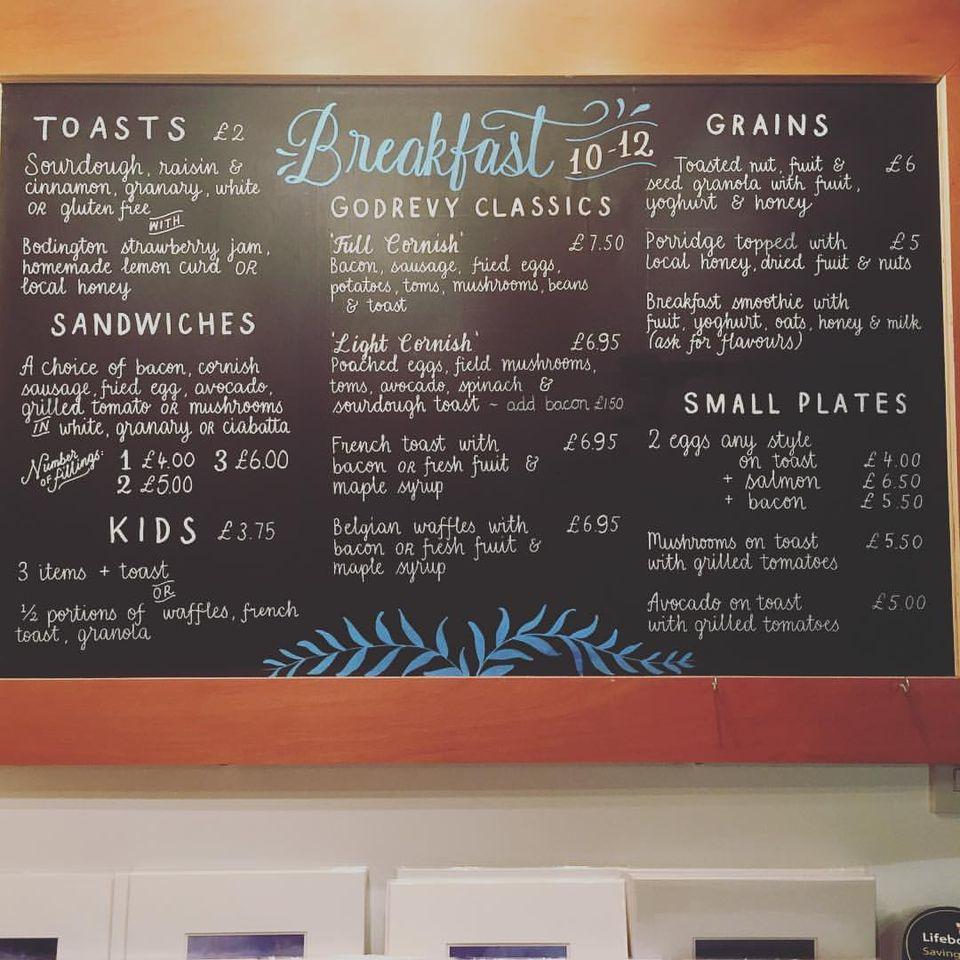 TOASTS £2
Sourdough, raisin &
cinnamon, granary, white
OR gluten free
WITH
Bodington strawberry jam,
homemade lemon curd OR
local honey
SANDWICHES
A choice of bacon, cornish
sausage, fried egg, avocado,
grilled tomato OR mushrooms
IN white, granary OR ciabatta
Number of fillings:
1 £4.00 3 £6.00
2 £5.00
KIDS £3.75
3 items + toast
OR
½ portions of waffles, french
toast, granola
Breakfast 10-12
GODREVY CLASSICS
'Full Cornish' £7.50
Bacon, sausage, fried eggs,
potatoes, toms, mushrooms, beans
& toast
'Light Cornish' £6.95
Poached eggs, field mushrooms,
toms, avocado, spinach &
sourdough toast ~ add bacon £1.50
French toast with £6.95
bacon OR fresh fruit &
maple syrup
Belgian waffles with £6.95
bacon OR fresh fruit &
maple syrup
GRAINS
Toasted nut, fruit & £6
seed granola with fruit,
yoghurt & honey
Porridge topped with £5
local honey, dried fruit & nuts
Breakfast smoothie with
fruit, yoghurt, oats, honey & milk
(ask for flavours)
SMALL PLATES
2 eggs any style
on toast £4.00
+ salmon £6.50
+ bacon £5.50
Mushrooms on toast £5.50
with grilled tomatoes
Avocado on toast £5.00
with grilled tomatoes
Saving